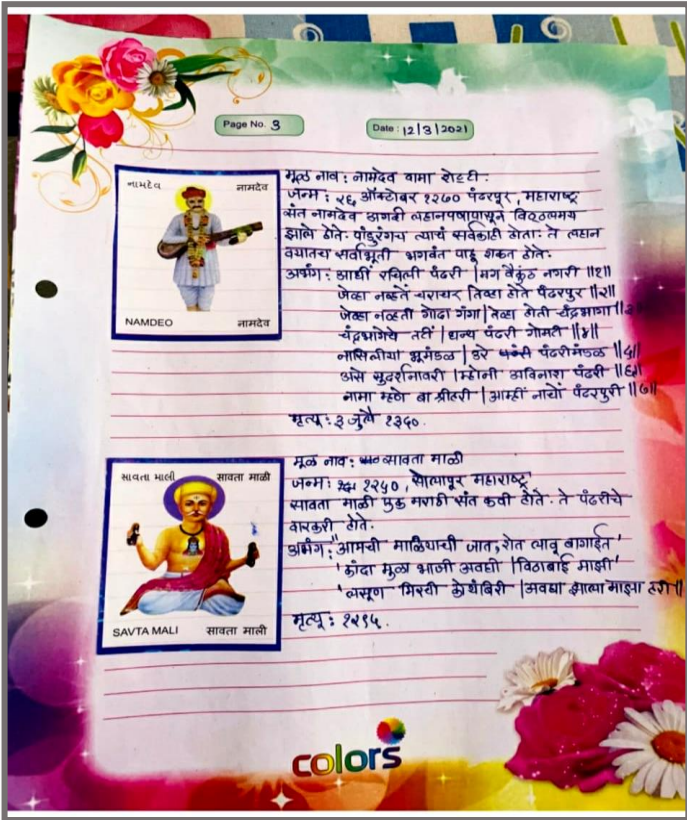 Page No. 3
Date : 12/3/2021
नामदेव नामदेव
NAMDEO नामदेव
मूळ नाव : नामदेव दामा शेट्टी.
जन्म : २६ ऑक्टोबर १२७० पंढरपूर, महाराष्ट्र
संत नामदेव अगदी लहानपणापासून विठ्ठलमय
झाले होते. पांडुरंगच त्याचं सर्वकाही होता. ते लहान
वयातच सर्वाभूती भगवंत पाहू शकत होते.
अभंग : आधीं रचिली पंढरी | मग वैकुंठ नगरी ||१||
जेव्हा नव्हतें चराचर तेव्हा होते पंढरपुर ||२||
जेव्हा नव्हती गोदा गंगा | तेव्हा होती चंद्रभागा ||३||
चंद्रभागेचे तटीं | धन्य पंढरी गोमटी ||४||
नासिलीया भूमंडळ | उरे पंढरीमंडळ ||५||
असे सुदर्शनावरी | म्हणोनी अविनाश पंढरी ||६||
नामा म्हणे बा श्रीहरी | आम्हीं नाचों पंढरपुरी ||७||
मृत्यू : ३ जुलै १३५०.
સાવતા માલી सावता माळी
SAVTA MALI सावता माली
मूळ नाव : सावता माळी
जन्म : १२५०, सोलापूर महाराष्ट्र
सावता माळी एक मराठी संत कवी होते. ते पंढरीचे
वारकरी होते.
अभंग : "आमची माळियाची जात, शेत लावू बागाईत'
'कांदा मुळा भाजी अवघी | विठाबाई माझी'
'लसूण मिरची कोथंबिरी | अवघा झाला माझा हरी ||
मृत्यू : १२९५.
colors